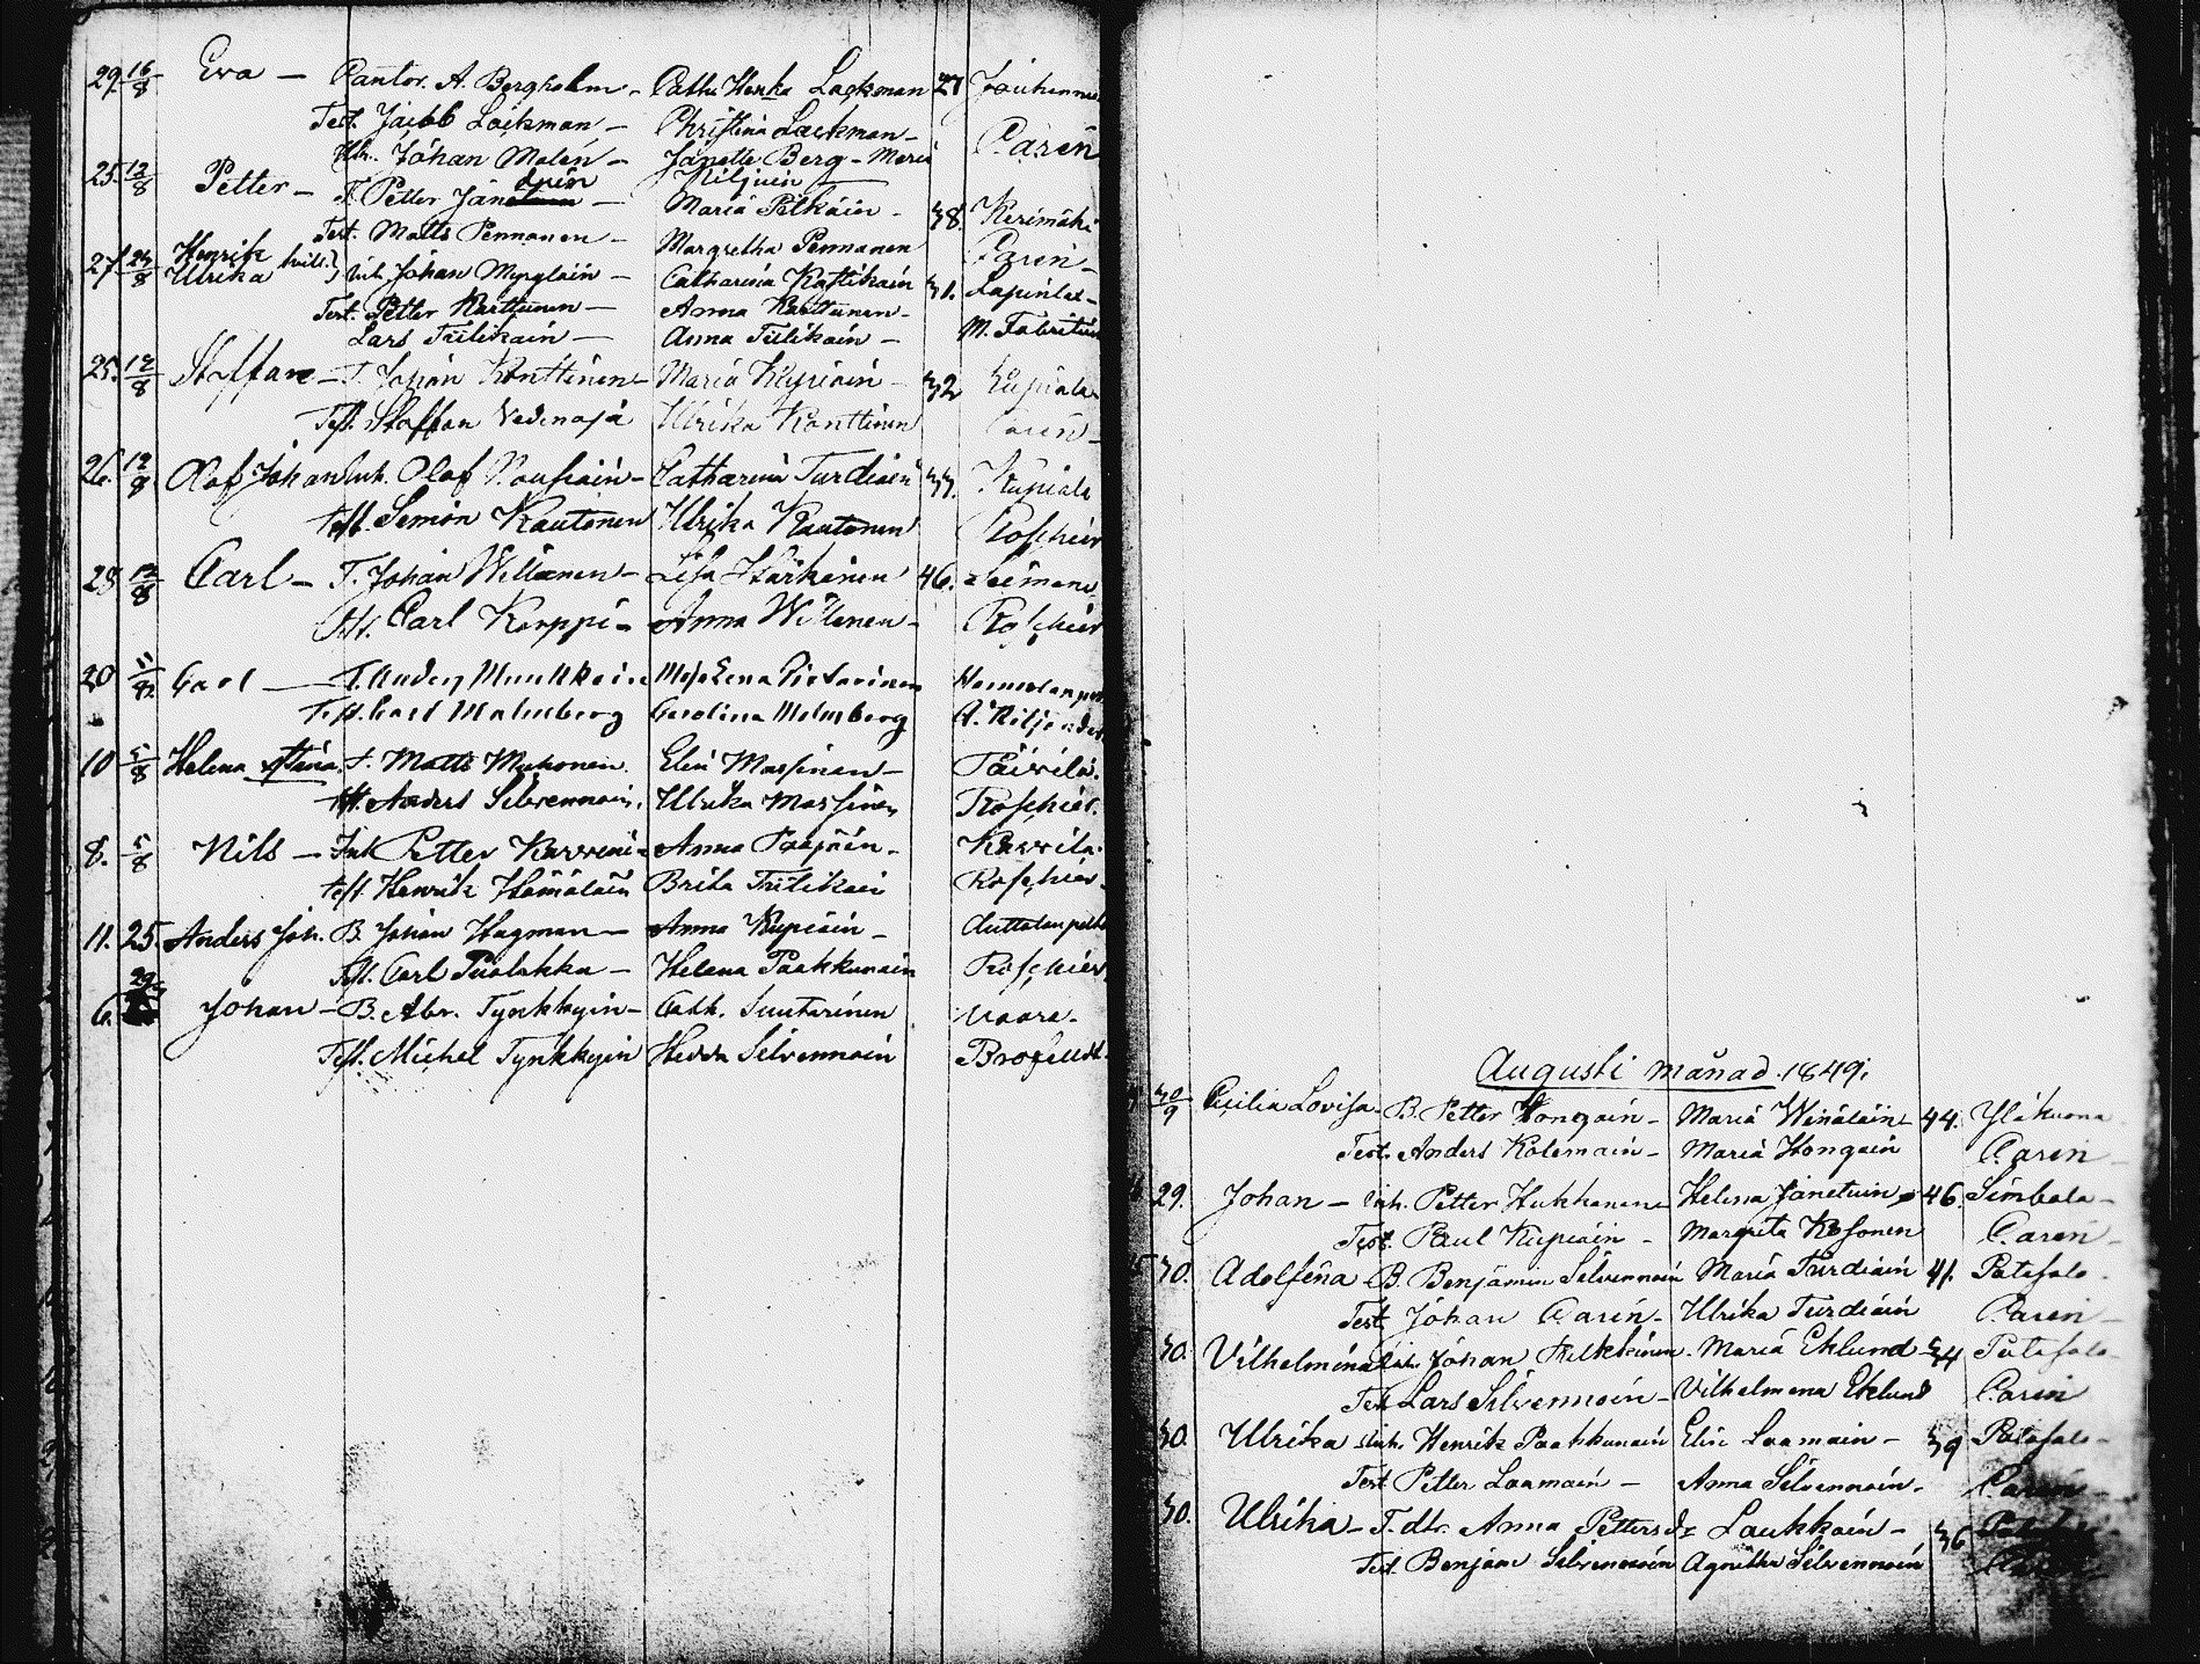 29. 16/8 Eva — Cantor. A. Bergholm - Cath. Henka Lackman 27
Test. Jacob Lackman — Christina Lackman — Carén
Johan Malén — Janette Berg - Maria
Kiljuin
25. 12/8 Petter — T. Petter Maria Pelkäin - 38. Kerimäki
Test. Matts Pennanen — Margretha Pennanen Carén —
27. 24/8 Henrik
Ulrika tvill. } Inh. Johan — Catharina 31. Lapinlax —
Test. Petter Karttunen — Anna Karttunen —
Lars Tiilikain — Anna Tiilikain — M.
25. 12/8 Staffan — T. Johan Konttinen — Maria 32 Kupiala
Test. Staffan Vedenoja Ulrika Konttinen Carén —
26. 12/8 Olof Johan Inh. Olof Nousiain — Catharina Turdiain 33. Kupiala
Test. Simon Rautanen Ulrika Rautanen Roschier
28 12/8 Carl — T. Johan Willanen — Lisa Härkänen 46.
Test. Carl Korppi — Anna Willanen — Roschier
20 Carl — T. Anders Munkkain Maja Lena Pietarinen
Test. Carl Malmberg Carolina Malmberg A.
10 5/8 Helena Stina. T. Matts Muhonen. Elin Massinen — Päivilä.
Test. Anders Silvennoin. Ulrika Massinen Roschier.
8. 5/8 Nils — Inh Petter Anna — Kavvila.
Test. Henrik Hämäläin Brita Tiilikain Roschier.
11. 25. Anders Joh. B. Johan Hagman — Anna Kupiain —
Test. Carl Puolakka — Helena Paakkunain Roschier
6. Johan — B. Abr. Tynkkyin — Cath. Suutarinen Vaara —
Test. Michel Tynkkyin Hedda Silvennoin
Augusti månad. 1849.
30/9 Cecilia Lovisa. B. Petter Hongain — Maria Winäläin — 44. Yläkuona
Test. Anders Kolemain — Maria Hongain Carén —
29. Johan — Inh. Petter Hukkanen Helena Janetuin 46. Simbala —
Test. Paul Kupiain — Margreta Kosonen Carén —
30. Adolfina — B. Benjamin Silvennoin Maria Turdiain 41. Patasalo.
Test. Johan Carén — Ulrika Turdiain Carén —
30. Vilhelmina Inh. Johan — Maria Eklund 34 Patasalo
Test. Lars Silvennoin — Vilhelmina Eklund Carén
30. Ulrika Inh. Henrik Paakkunain Elin Laamain — 39 Patasalo —
Test. Petter Laamain — Anna Silvennoin — Carén —
30. Ulrika — T. dtr. Anna Pettersdr Laukkain — 36
Test. Benjam Silvennoin Agnetha Silvennoin